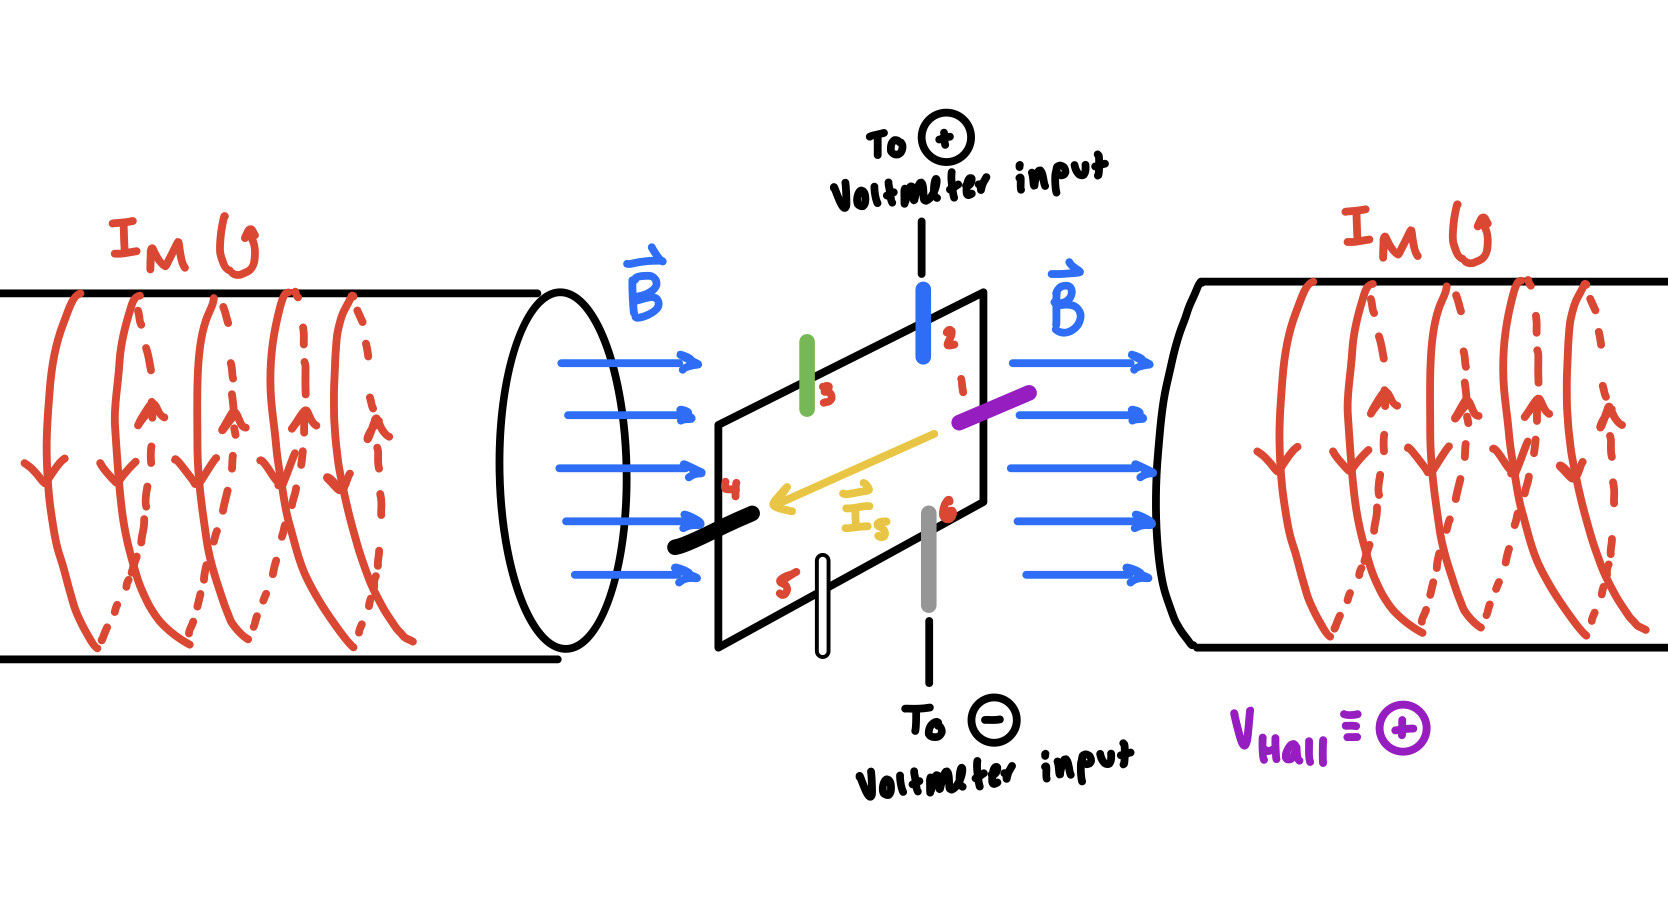 To ⊕
Voltmeter input
I_M ↺
B⃗
B⃗
I_M ↺
2
3
1
4
I⃗_s
6
5
To ⊖
Voltmeter input
V_Hall ≡ ⊕